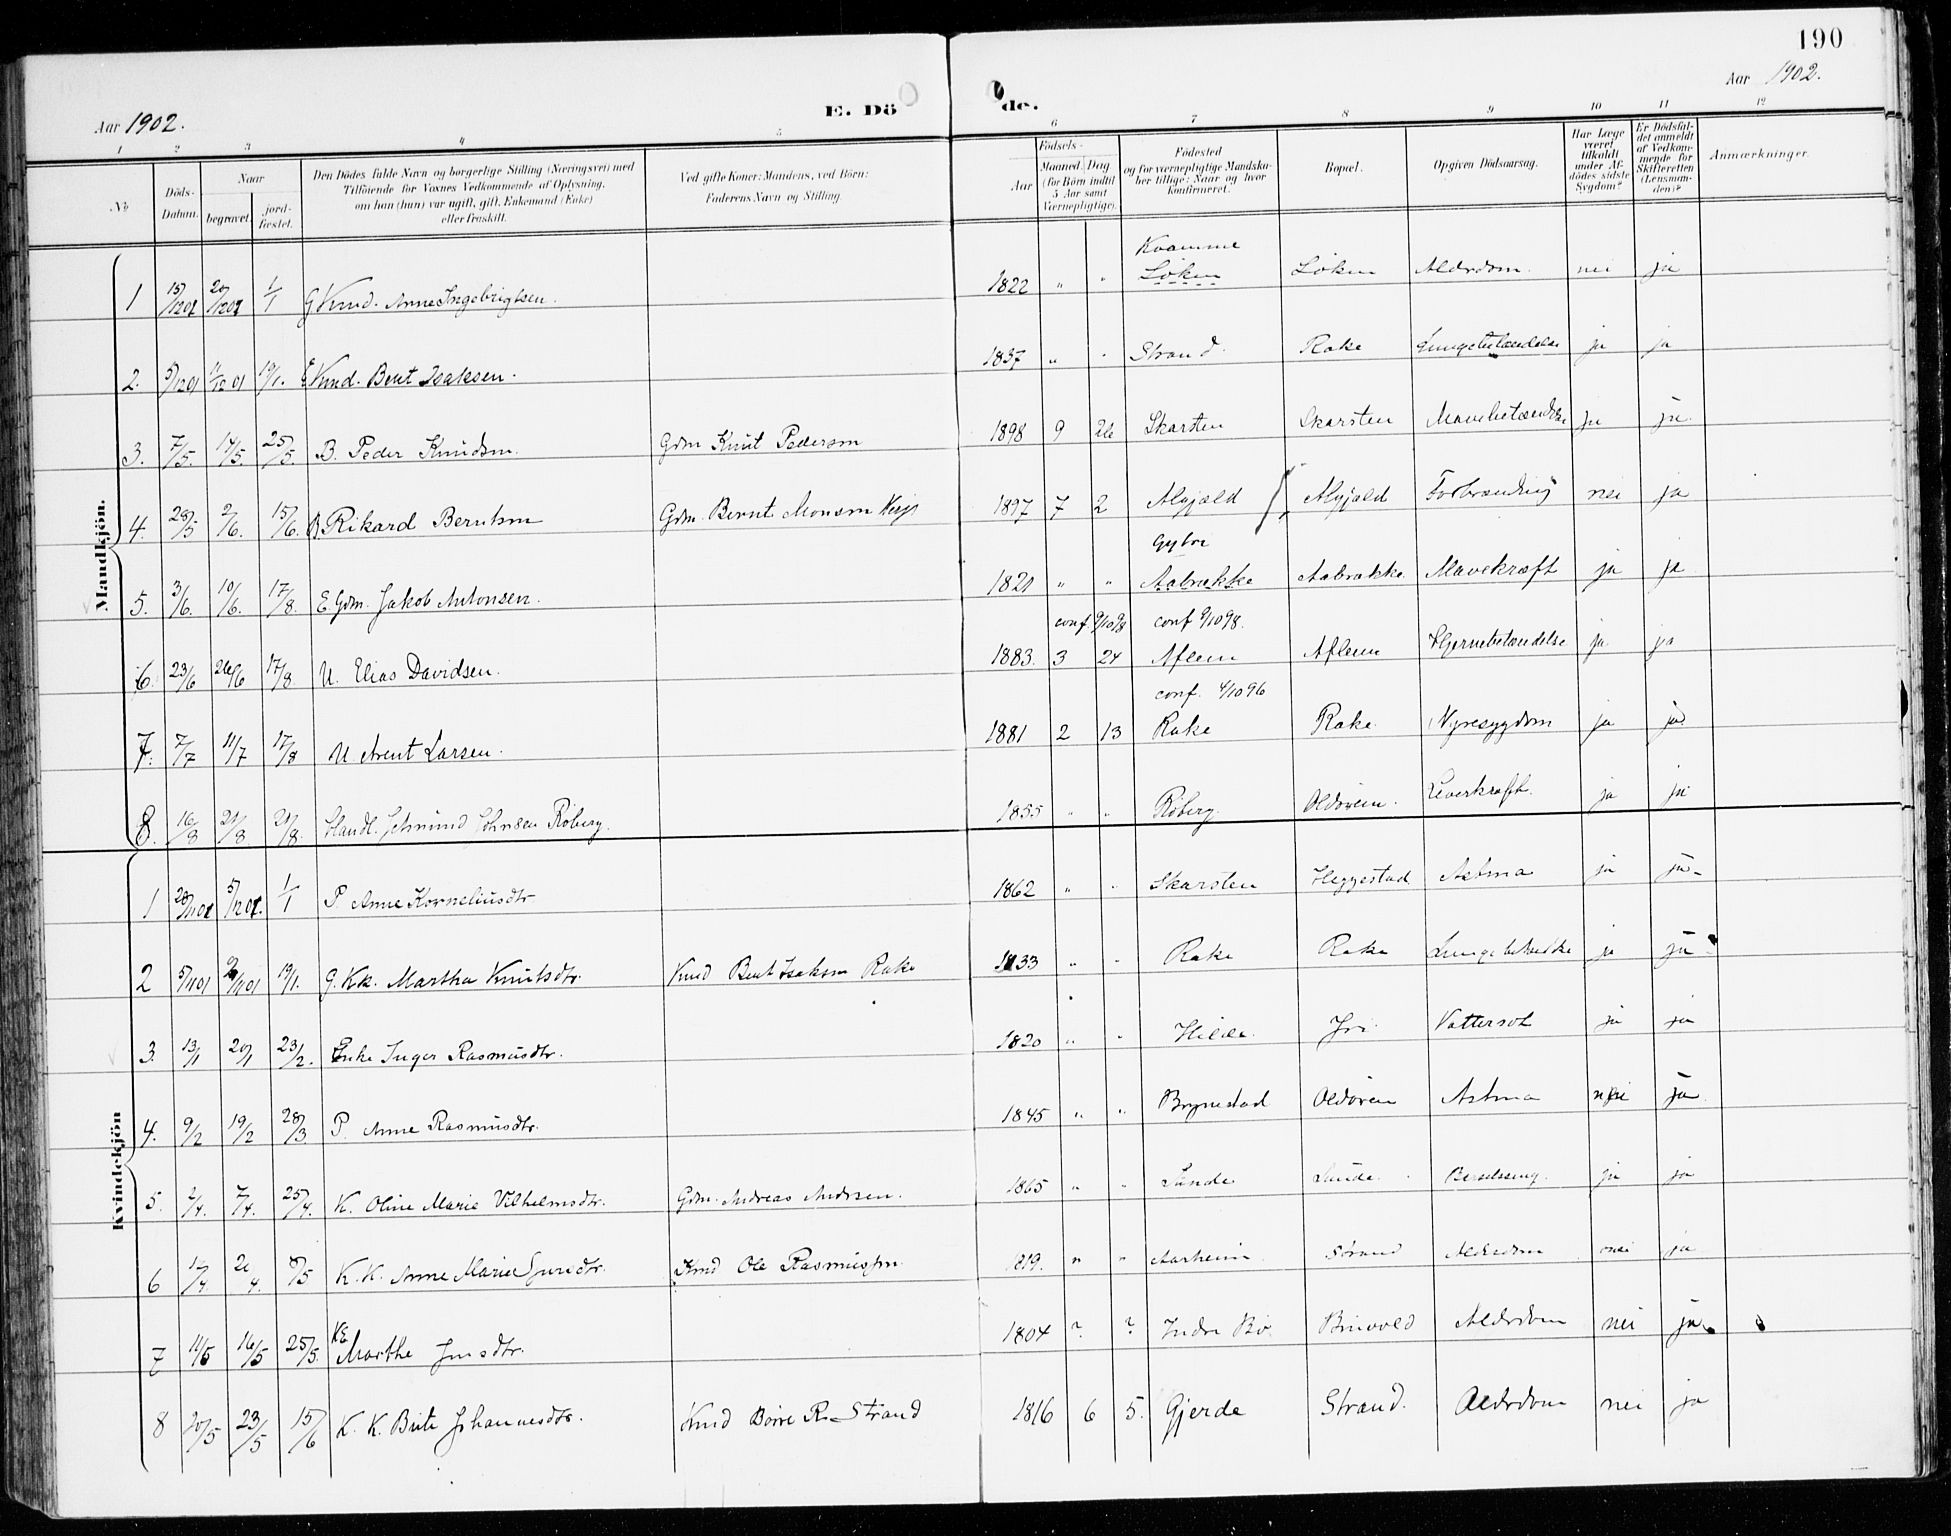 190
Aar 1902.
Aar 1902.
E. Dö de.
1 2 3 4 5 6 7 8 9 10 11 12
No
Döds-Datum.
Naar
begravet.
jord-fæstet.
Den Dödes fulde Navn og borgerlige Stilling (Næringsvei) med
Tilföiende for Voxnes Vedkommende af Oplysning,
om han (hun) var ugift, gift, Enkemand (Enke)
eller fraskilt.
Ved gifte Koner: Mandens, ved Börn:
Faderens Navn og Stilling.
Födsels-
Aar
Maaned. Dag
(for Börn indtil
5 Aar samt
Værnepligtige).
Födested
og for værnepligtige Mandska-
ber tillige: Naar og hvor
konfirmeret.
Bopæl.
Opgiven Dödsaarsag.
Har Læge
været
tilkaldt
under Af-
dödes sidste
Sygdom?
Er Dödsfal-
det anmeldt
af Vedkom-
mende for
Skifteretten
(Lensman-
den)?
Anmærkninger.
Mandkjön.
Kvamme
1 15/12 01 20/12 01 1/1 G Kmd. Arne Ingebrigtsen. 1822 " " Løken Løken Alderdom. nei ja
2. 5/12 01 11/12 01 19/1. E Kmd. Bent Isaksen. 1837 " " Strand. Rake Lungebetændelse ja ja
3. 7/5. 14/5. 25/5 B. Peder Knudsen. Gdm Knut Pedersen 1898 9 26 Skarsten Skarsten Mavebetændelse ja ja.
4. 28/5 2/6. 15/6. B Rikard Berntsen Gdm. Bernt Monsen 1897 7 2 Myjæld Myjæld Forbrænding nei ja
5. 3/6. 10/6. 17/8. E Gdm. Jakob Antonsen. 1821 " " Aabrække Aabrække Mavekræft ja ja
conf. 9/10 98 conf 9/10 98.
6. 23/6 26/6 17/8. U. Elias Davidsen. 1883. 3 24 Aflem Aflem Hjernebetændelse ja. ja
conf. 4/10 96
7. 7/7 11/7 17/8 U. Arent Larsen. 1881 2 13 Rake Rake. Nyresygdom ja ja
8. 16/8 21/8 21/8. Handl. Johnsen Röberg. 1855 " " Röberg. Oldören. Leverkræft. ja ja
Kvindekjön
1 28/11 01 5/12 01. 1/1 P. Anne Korneliusdtr 1862 " " Skarsten Heggestad Astma ja ja
2 5/11 01 9/11 01 19/1. G. Kk. Martha Knutsdtr. Kmd Bent Isaksen Rake 1833 " " Rake Rake ja ja
3. 13/1 20/1 23/2. Enke Inger Rasmusdtr. 1820 " " Hilde Iri. Vattersot ja ja
4. 9/2 19/2 28/3 P. Anne Rasmusdtr. 1845 " " Brynestad Oldören Astma nei ja.
5. 2/4. 7/4. 25/4. K. Oline Marie Vilhelmsdtr. Gdm. Andreas Andersen. 1865 " " Lunde Lunde. Barselseng. ja ja
6 /4. 21/4. 8/5 K. K. Anne Marie Sjursdtr. Kmd Ole Rasmussen. 1819. " " Aarheim Strand Alderdom nei ja
7 11/5 16/5 25/5. KE. Marthe Jonsdtr. 1804 ? ? Indre Bö. Brivold Alderdom nei ja
8 20/5 23/5 15/6 K. K. Brite Johannesdtr. Kmd Börre R. Strand 1816 6 5. Gjerde Strand. Alderdom nei ja